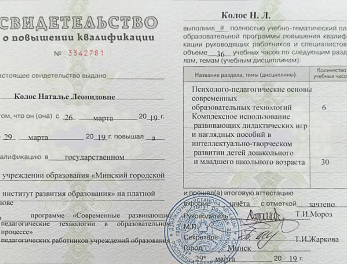 СВИДЕТЕЛЬСТВО
о повышении квалификации
№ 3342781
настоящее свидетельство выдано
Колос Наталье Леонидовне
том, что он (она) с 26 марта 2019 г.
29 марта 2019 г. повышал а
квалификацию в государственном
учреждении образования «Минский городской
институт развития образования» на платной
основе
программе «Современные развивающие
педагогические технологии в образовательном
процессе»
педагогических работников учреждений образования
Колос Н. Л.
выполнил а полностью учебно-тематический план
образовательной программы повышения квалификации
руководящих работников и специалистов
объеме 36 учебных часов по следующим
разделам, темам (учебным дисциплинам)
Название раздела, темы (дисциплины)
Количество
учебных часов
Психолого-педагогические основы
современных
образовательных технологий 6
Комплексное использование
развивающих дидактических игр
и наглядных пособий в
интеллектуально-творческом
развитии детей дошкольного
и младшего школьного возраста 30
и прошел(а) итоговую аттестацию
в форме зачёта с отметкой зачтено
Руководитель Т.И.Мороз
М.П.
Секретарь Т.И.Жаркова
Город Минск
29 марта 2019 г.